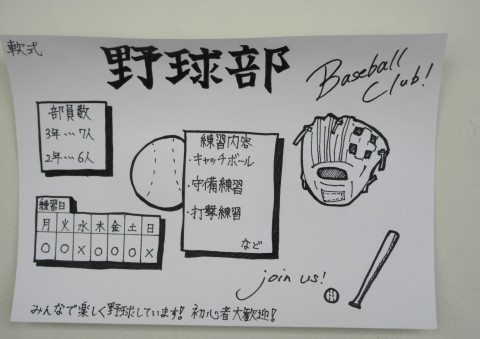 軟式
野球部
Baseball
Club!
部員数
3年…7人
2年…6人
練習内容
・キャッチボール
・守備練習
・打撃練習
など
練習日
月 火 水 木 金 土 日
○ ○ × ○ ○ ○ ×
join us!
みんなで楽しく野球しています! 初心者大歓迎!